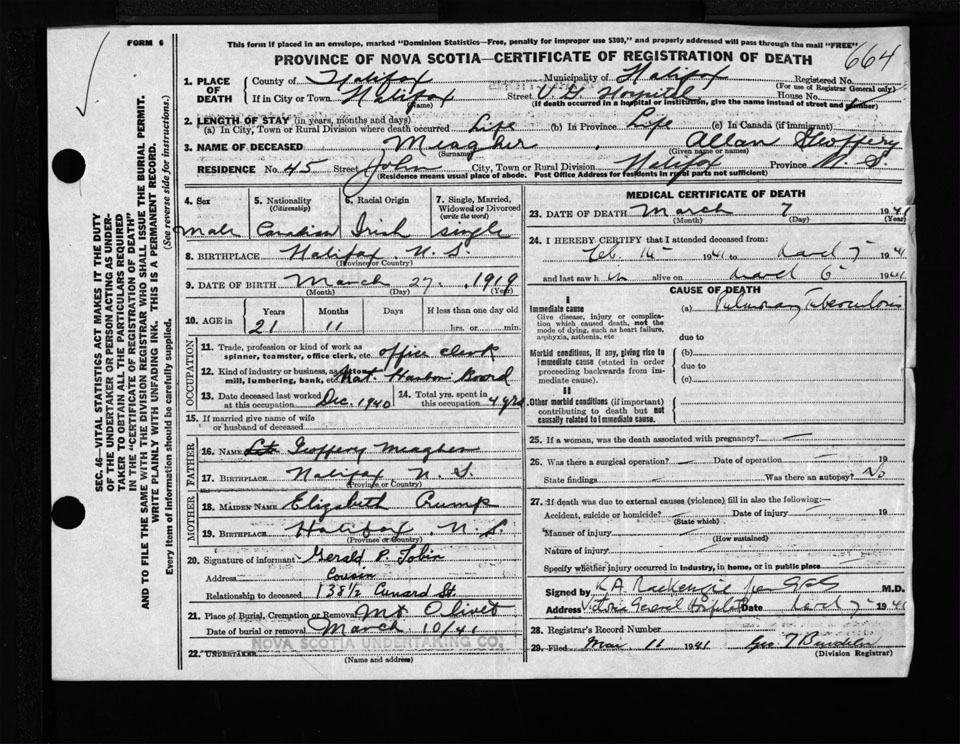 FORM 6
This form if placed in an envelope, marked "Dominion Statistics—Free, penalty for improper use $300," and properly addressed will pass through the mail "FREE"
PROVINCE OF NOVA SCOTIA—CERTIFICATE OF REGISTRATION OF DEATH
664
1. PLACE OF DEATH
County of Halifax Municipality of Halifax Registered No.
(For use of Registrar General only)
If in City or Town Halifax Street V. G. Hospital House No.
(Name) (If death occurred in a hospital or institution, give the name instead of street and number)
2. LENGTH OF STAY (in years, months and days)
(a) In City, Town or Rural Division where death occurred Life (b) In Province Life (c) In Canada (if immigrant)
3. NAME OF DECEASED Meagher , Allan Geoffery
(Surname) (Given name or names)
RESIDENCE No. 45 Street John City, Town or Rural Division Halifax Province N. S.
(Residence means usual place of abode. Post Office Address for residents in rural parts not sufficient)
4. Sex 5. Nationality (Citizenship) 6. Racial Origin 7. Single, Married, Widowed or Divorced (write the word)
Male Canadian Irish single
8. BIRTHPLACE Halifax N. S.
(Province or Country)
9. DATE OF BIRTH March 27 1919
(Month) (Day) (Year)
10. AGE in Years Months Days If less than one day old
21 11 hrs. or min.
OCCUPATION
11. Trade, profession or kind of work as spinner, teamster, office clerk, etc. office clerk
12. Kind of industry or business, as cotton mill, lumbering, bank, etc. Nat. Harbour Board
13. Date deceased last worked at this occupation Dec. 1940 14. Total yrs. spent in this occupation 4 yrs
15. If married give name of wife or husband of deceased
FATHER
16. Name Geoffery Meagher
17. Birthplace Halifax N. S.
(Province or Country)
MOTHER
18. MAIDEN NAME Elizabeth Crump
19. BIRTHPLACE Halifax N. S.
(Province or Country)
20. Signature of informant Gerald P. Tobin
Address Cousin
Relationship to deceased 138½ Cunard St.
21. Place of Burial, Cremation or Removal Mt Olivet
Date of burial or removal March 10/41
22. UNDERTAKER NOVA SCOTIA UNDERTAKING CO.
(Name and address)
MEDICAL CERTIFICATE OF DEATH
23. DATE OF DEATH March 7 1941
(Month) (Day) (Year)
24. I HEREBY CERTIFY that I attended deceased from:
Feb. 14 1941 to March 7 1941
and last saw him alive on March 6 1941
CAUSE OF DEATH
I
Immediate cause (a) Pulmonary Tuberculosis
Give disease, injury or complication which caused death, not the mode of dying, such as heart failure, asphyxia, asthenia, etc
due to
Morbid conditions, if any, giving rise to immediate cause (stated in order proceeding backwards from immediate cause).
(b)
due to
(c)
II
Other morbid conditions (if important) contributing to death but not causally related to immediate cause.
25. If a woman, was the death associated with pregnancy?
26. Was there a surgical operation? Date of operation 19
State findings Was there an autopsy? No
27. If death was due to external causes (violence) fill in also the following:—
Accident, suicide or homicide? Date of injury 19
(State which)
Manner of injury
(How sustained)
Nature of injury
Specify whether injury occurred in industry, in home, or in public place
Signed by K A MacKenzie M.D.
Address Victoria General Hospital Date March 7 1941
28. Registrar's Record Number
29. Filed Mar 11 1941
(Division Registrar)
SEC. 46—VITAL STATISTICS ACT MAKES IT THE DUTY
OF THE UNDERTAKER OR PERSON ACTING AS UNDER-
TAKER TO OBTAIN ALL THE PARTICULARS REQUIRED
IN THE "CERTIFICATE OF REGISTRATION OF DEATH"
AND TO FILE THE SAME WITH THE DIVISION REGISTRAR WHO SHALL ISSUE THE BURIAL PERMIT.
WRITE PLAINLY WITH UNFADING INK. THIS IS A PERMANENT RECORD.
Every item of information should be carefully supplied. (See reverse side for instructions.)